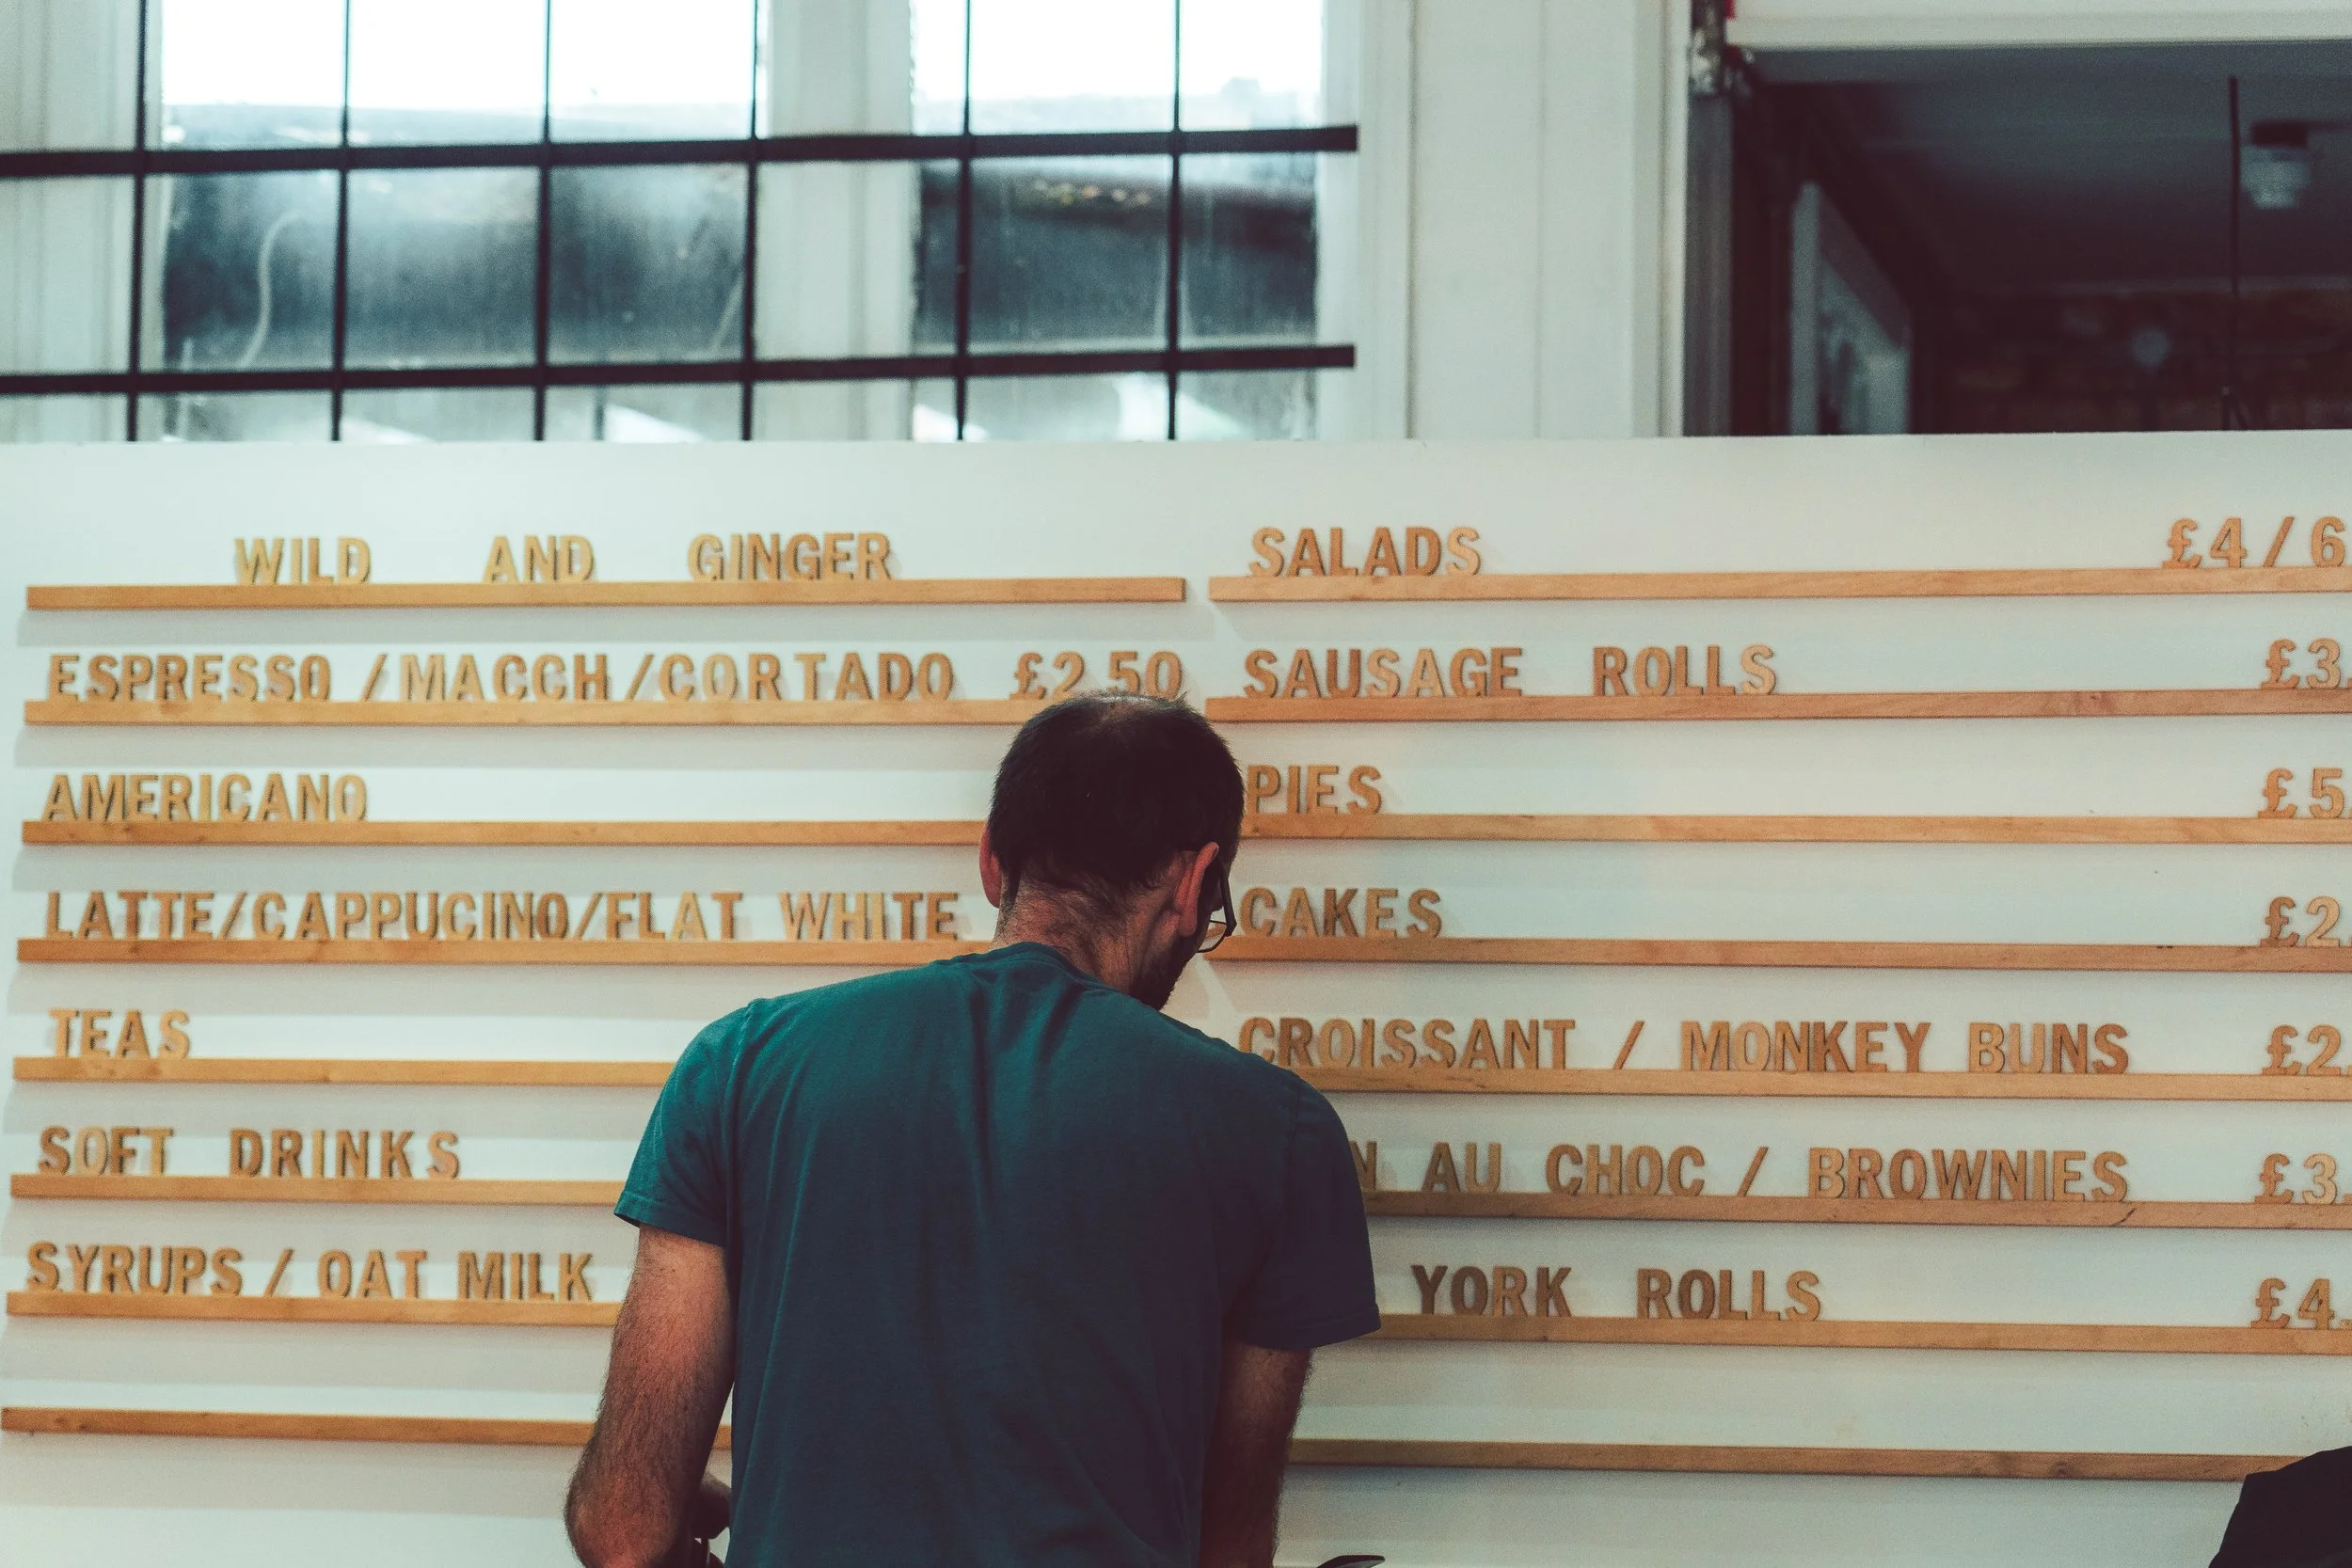 WILD AND GINGER
ESPRESSO / MACCH / CORTADO £2.50
AMERICANO
LATTE/CAPPUCINO/FLAT WHITE
TEAS
SOFT DRINKS
SYRUPS / OAT MILK
SALADS £4/6
SAUSAGE ROLLS £3.
PIES £5
CAKES £2.
CROISSANT / MONKEY BUNS £2.
AU CHOC / BROWNIES £3.
YORK ROLLS £4.